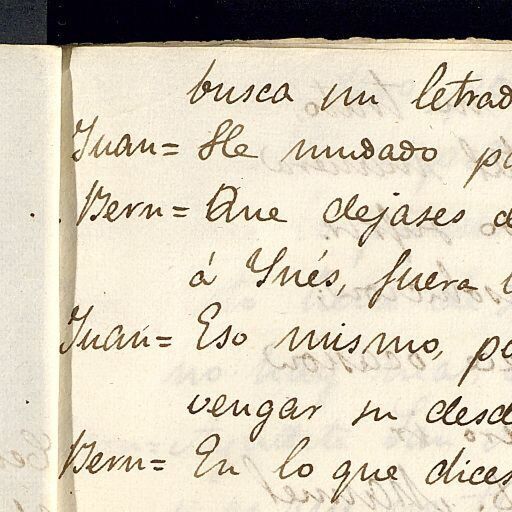 busca un letrad
Juan= He mudado pa
Bern= Que dejases d
á Ynés, fuera
Juan= Eso mismo, pa
vengar su desd
Bern= En lo que dices